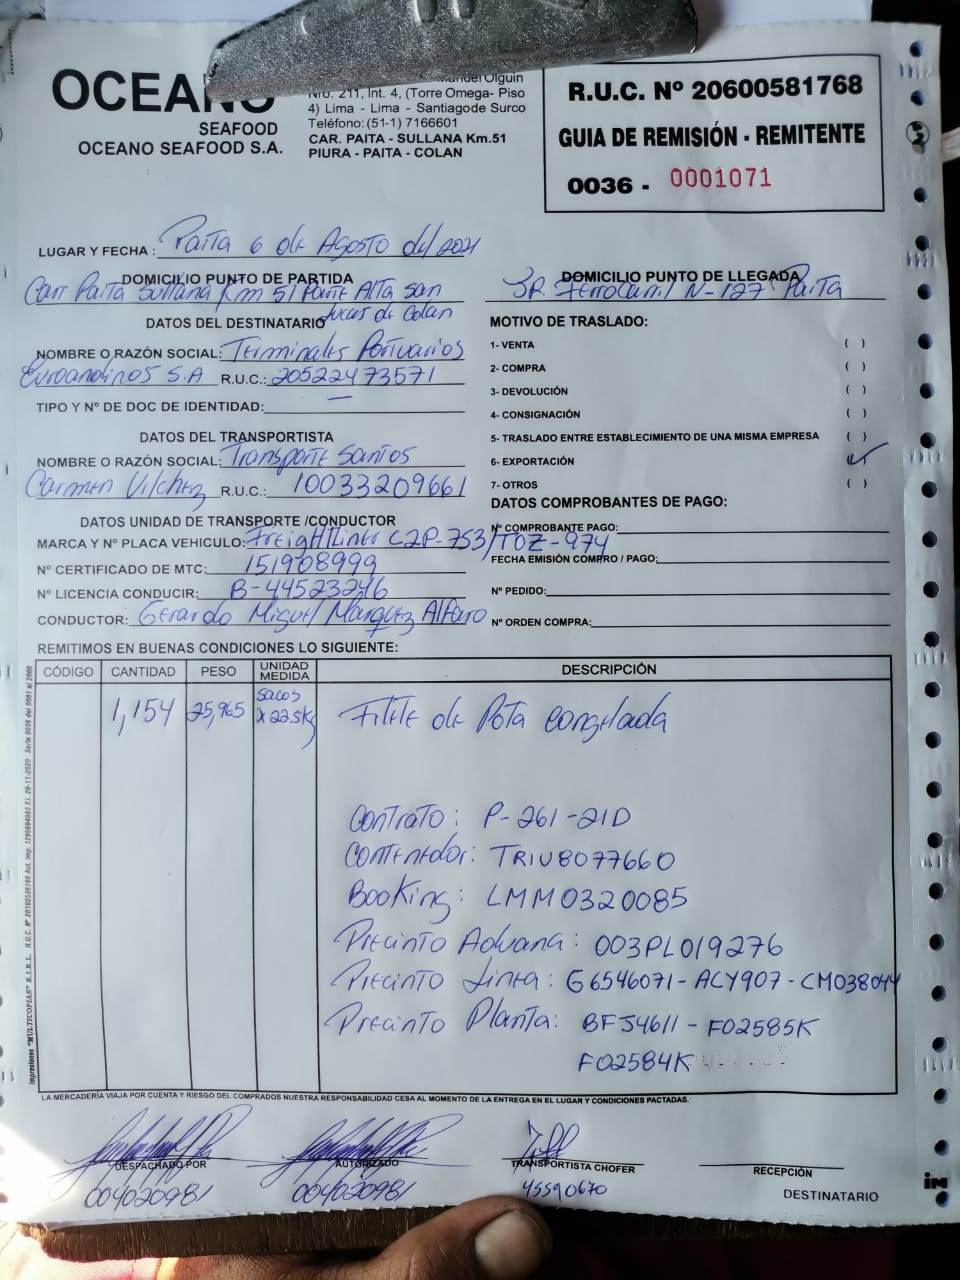 OCEANO
SEAFOOD
OCEANO SEAFOOD S.A.
Olguin
Nro. 211, Int. 4, (Torre Omega- Piso
4) Lima - Lima - Santiagode Surco
Teléfono: (51-1) 7166601
CAR. PAITA - SULLANA Km.51
PIURA - PAITA - COLAN
R.U.C. Nº 20600581768
GUIA DE REMISIÓN - REMITENTE
0036 - 0001071
LUGAR Y FECHA : Paita 6 de Agosto del 2021
DOMICILIO PUNTO DE PARTIDA
Carr Paita Sullana Km 51 Parte Alta San
Lucas de Colan
DOMICILIO PUNTO DE LLEGADA
JR. Ferrocarril N-127 Paita
DATOS DEL DESTINATARIO
NOMBRE O RAZÓN SOCIAL: Terminales Portuarios
Euroandinos S.A R.U.C.: 20522473571
TIPO Y Nº DE DOC DE IDENTIDAD:
DATOS DEL TRANSPORTISTA
NOMBRE O RAZÓN SOCIAL: Transporte Santos
Carmen Vilchez R.U.C.: 10033209661
DATOS UNIDAD DE TRANSPORTE /CONDUCTOR
MARCA Y Nº PLACA VEHICULO: Freightliner C2P-753/TOZ-974
Nº CERTIFICADO DE MTC: 151908999
Nº LICENCIA CONDUCIR: B-44523246
CONDUCTOR: Gerardo Miguel Marquez Alfaro
MOTIVO DE TRASLADO:
1- VENTA ( )
2- COMPRA ( )
3- DEVOLUCIÓN ( )
4- CONSIGNACIÓN ( )
5- TRASLADO ENTRE ESTABLECIMIENTO DE UNA MISMA EMPRESA ( )
6- EXPORTACIÓN (✓)
7- OTROS ( )
DATOS COMPROBANTES DE PAGO:
Nº COMPROBANTE PAGO:
FECHA EMISIÓN COMPRO / PAGO:
Nº PEDIDO:
Nº ORDEN COMPRA:
REMITIMOS EN BUENAS CONDICIONES LO SIGUIENTE:
CÓDIGO CANTIDAD PESO UNIDAD MEDIDA DESCRIPCIÓN
1,154 25,965 sacos x 22.5kg Filete de Pota congelada
Contrato: P-261-21D
Contenedor: TRIU8077660
Booking: LMM0320085
Precinto Aduana: 003PL019276
Precinto Linea: G6546071-ACY907-CM038044
Precinto Planta: BFJ4611-F02585K
F02584K
Impresiones "MULTICOPIAS" E.I.R.L. R.U.C. Nº 20102538160 Aut. Imp. 1295694083 F.I. 20-11-2020 Serie 0036 del 0001 al 2000
LA MERCADERÍA VIAJA POR CUENTA Y RIESGO DEL COMPRADOS NUESTRA RESPONSABILIDAD CESA AL MOMENTO DE LA ENTREGA EN EL LUGAR Y CONDICIONES PACTADAS.
DESPACHADO POR
004020981
AUTORIZADO
004020981
TRANSPORTISTA CHOFER
45590670
RECEPCIÓN
DESTINATARIO
im